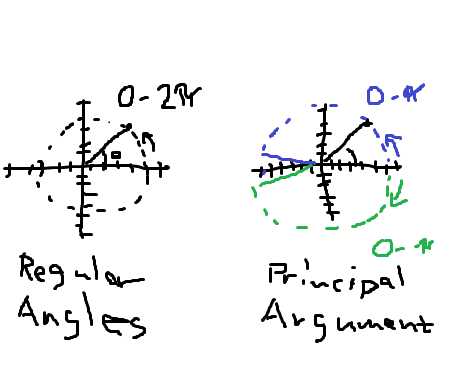 0-2π
0-π
θ
0-π
Regular
Angles
Principal
Argument